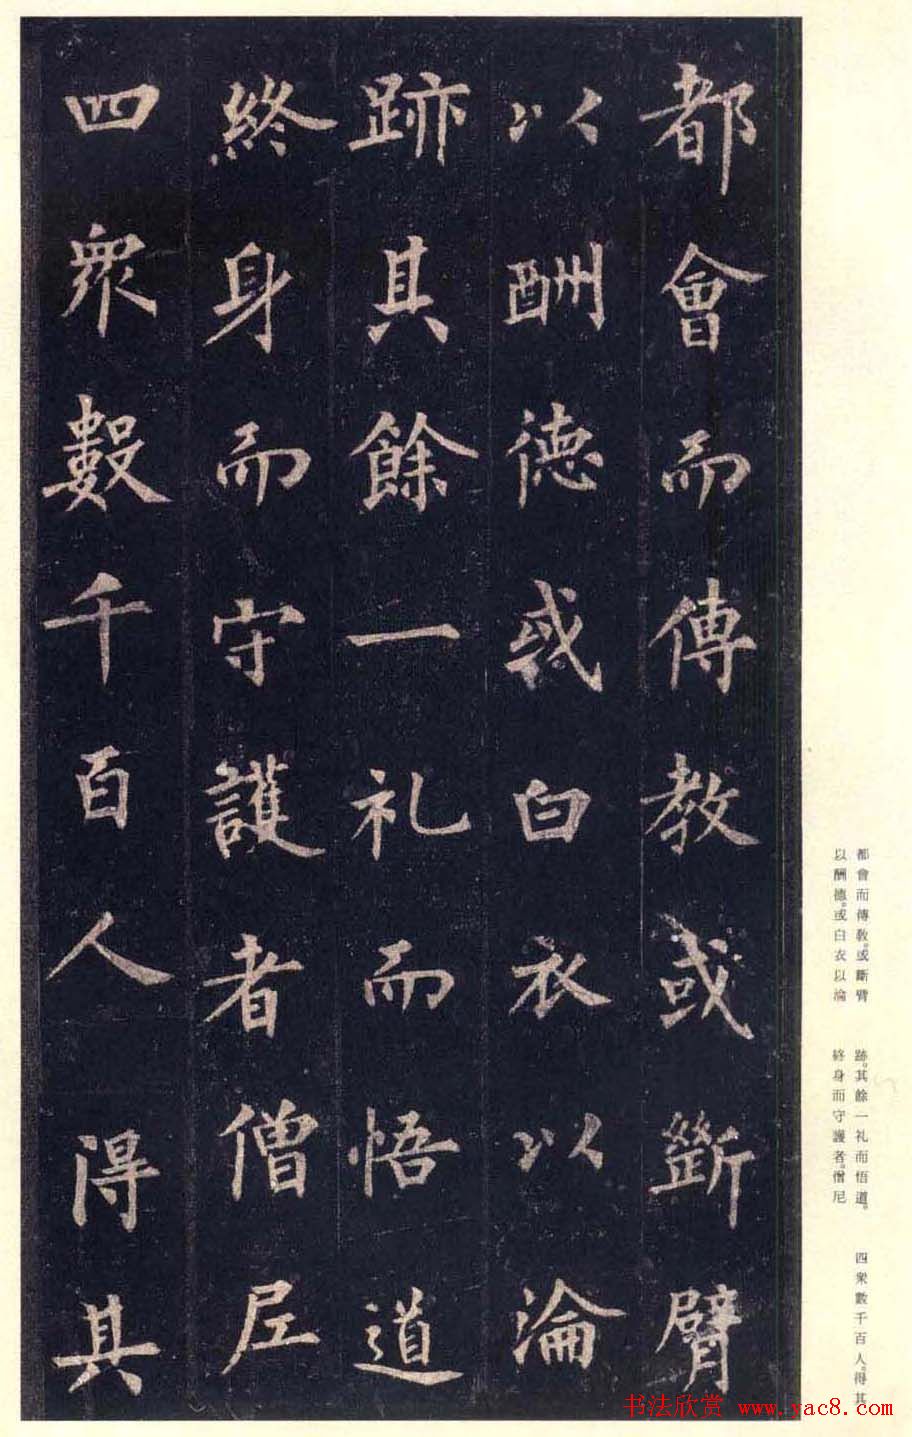 都會而傳教或斷臂
以酬德或白衣以淪
跡其餘一礼而悟道
終身而守護者僧尼
四衆數千百人得其
都會而傳教。或斷臂
以酬德。或白衣以淪
跡。其餘一礼而悟道。
終身而守護者。僧尼
四衆數千百人。得其
书法欣赏 www.yac8.com